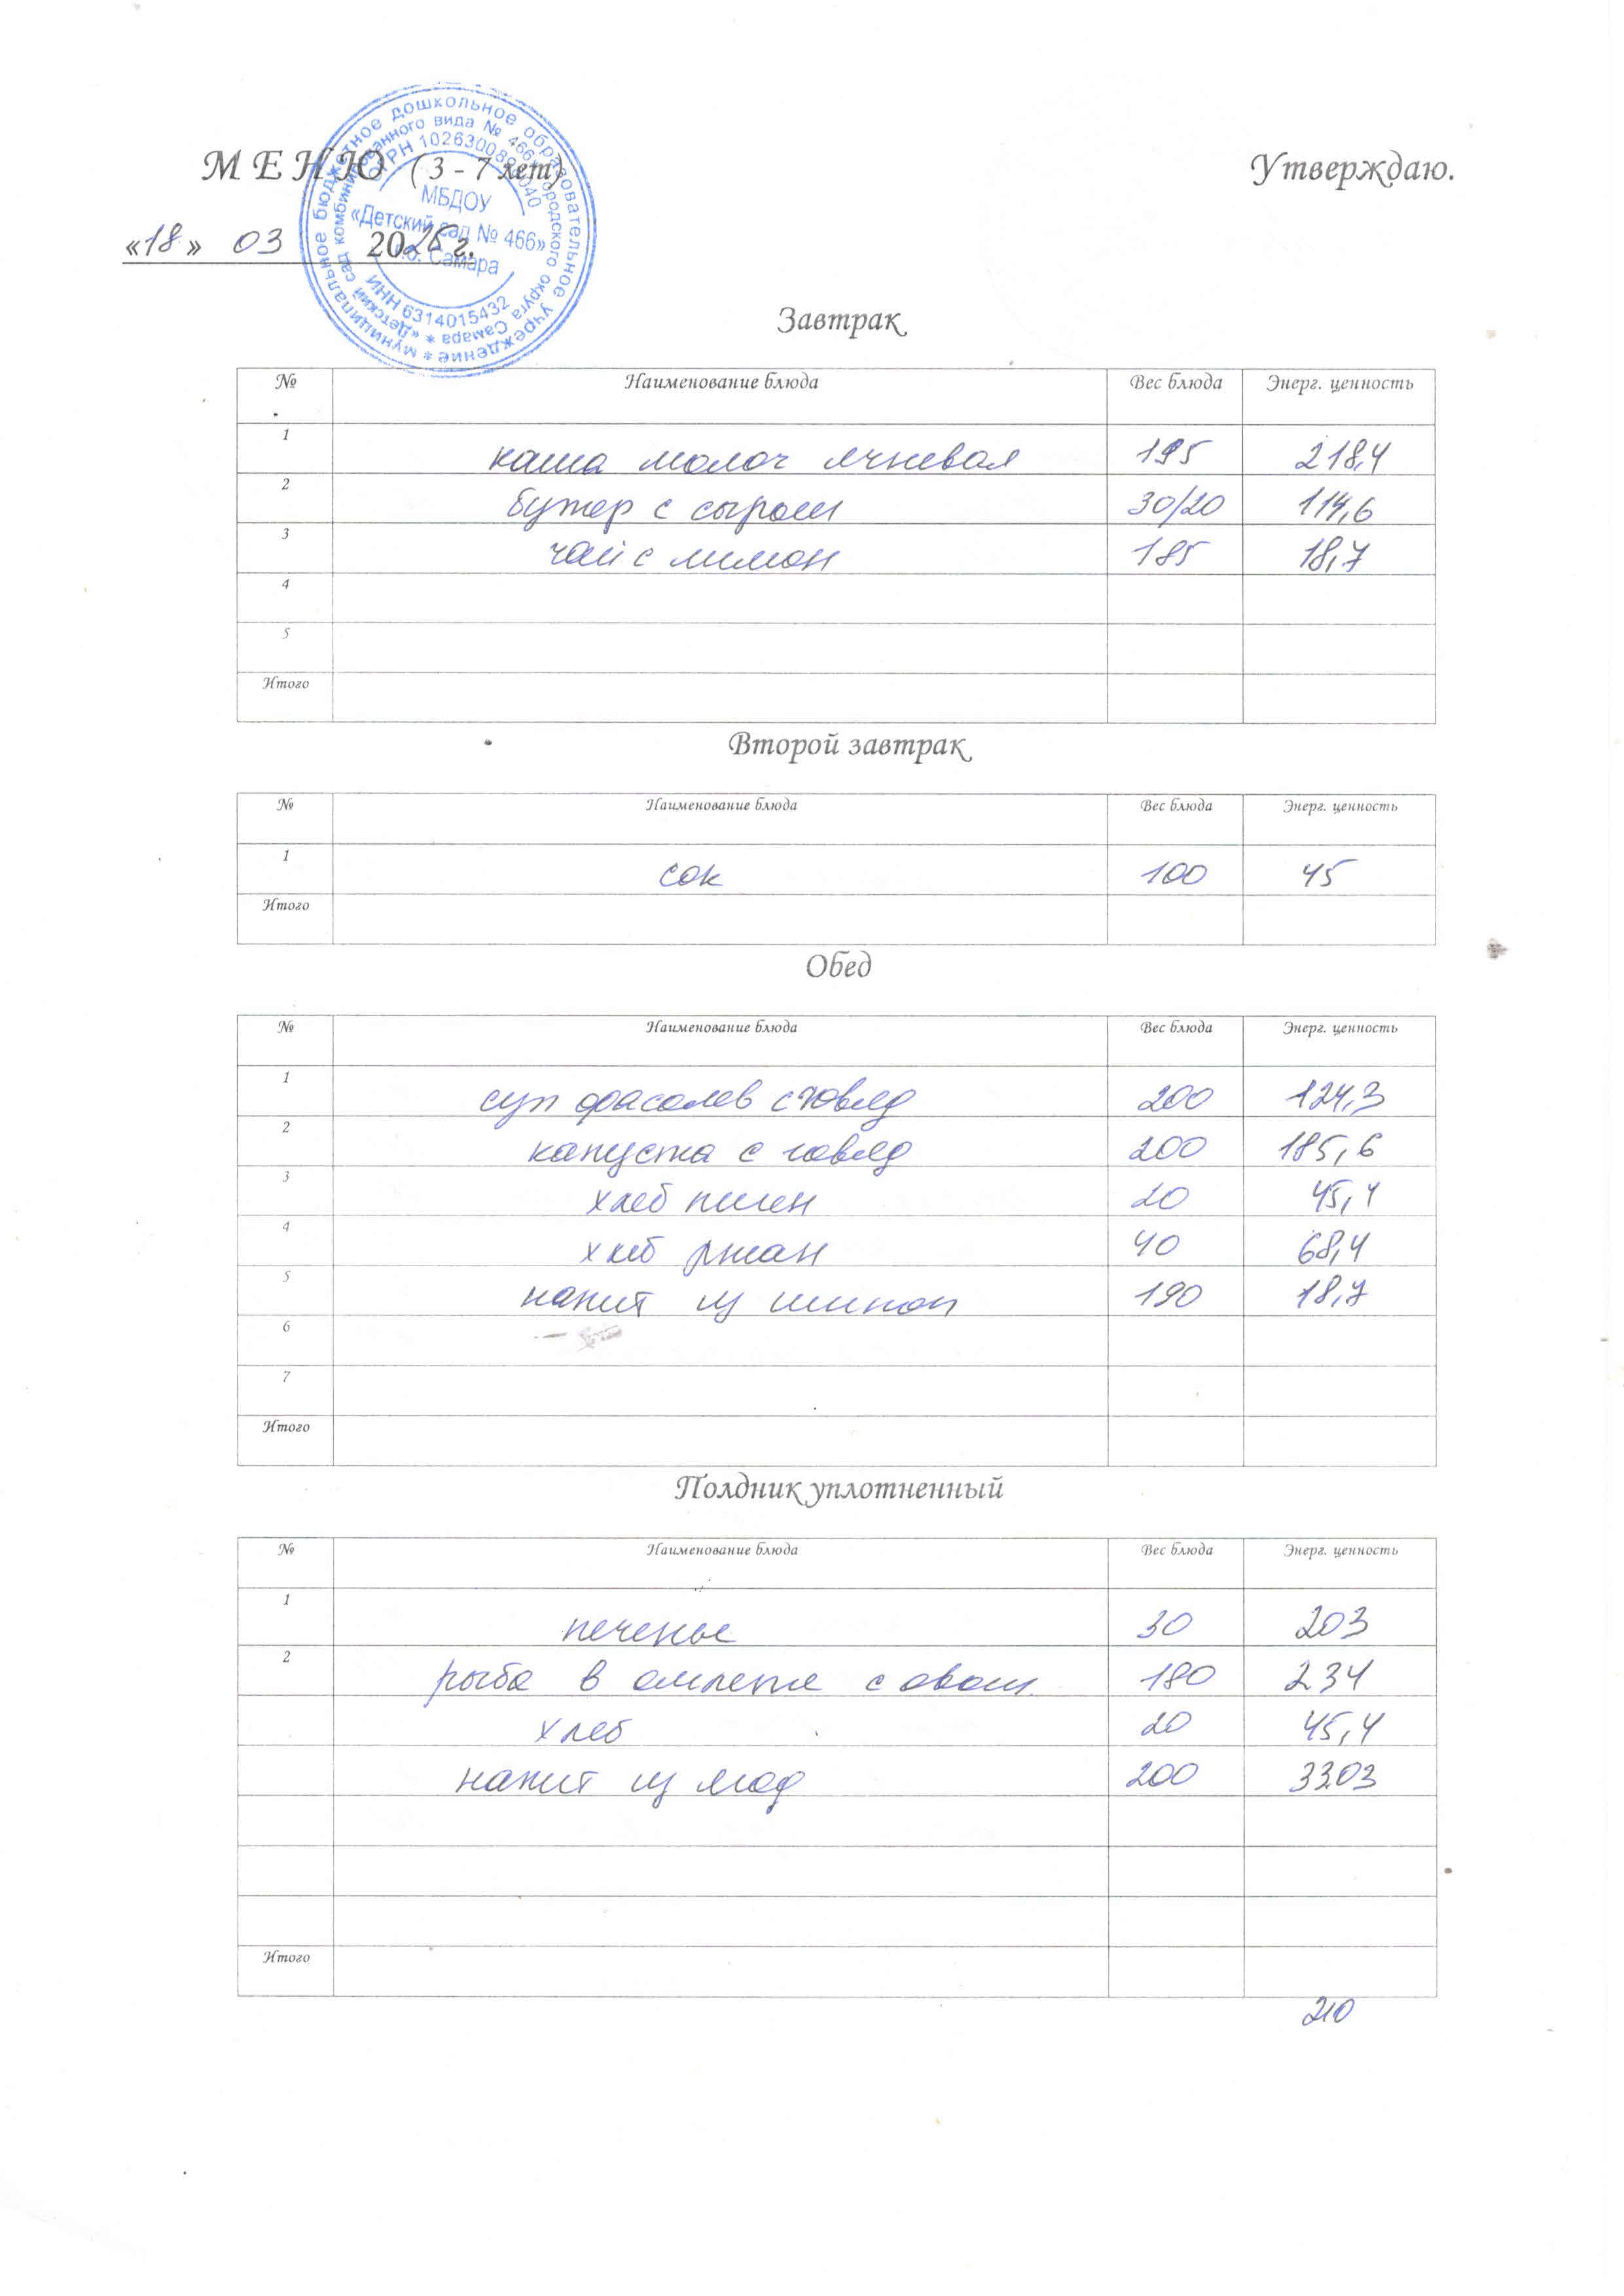 МЕНЮ (3 - 7 лет)
Утверждаю.
«18» 03 2025 г.
муниципальное бюджетное дошкольное образовательное учреждение *
«Детский сад комбинированного вида № 466» городского округа Самара *
МБДОУ
«Детский сад № 466»
г.о. Самара
ИНН 6314015432
Завтрак
№ Наименование блюда Вес блюда Энерг. ценность
1 каша молоч ячневая 195 218,4
2 бутер с сыром 30/20 114,6
3 чай с лимон 185 18,7
4
5
Итого
Второй завтрак
№ Наименование блюда Вес блюда Энерг. ценность
1 сок 100 45
Итого
Обед
№ Наименование блюда Вес блюда Энерг. ценность
1 суп фасолев с говяд 200 124,3
2 капуста с говяд 200 185,6
3 хлеб пшен 20 45,4
4 хлеб ржан 40 68,4
5 напит из шипов 190 18,7
6
7
Итого
Полдник уплотненный
№ Наименование блюда Вес блюда Энерг. ценность
1 печенье 30 203
2 рыба в омлете с овощ. 180 234
хлеб 20 45,4
напит из ягод 200 33,03
Итого
210